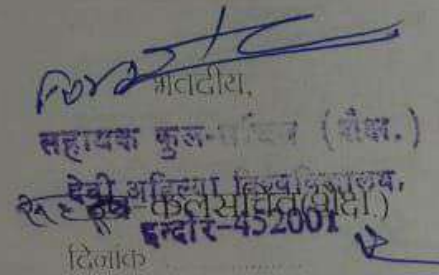 For
भवदीय,
सहायक कुल-सचिव (शैक्ष.)
देवी अहिल्या विश्वविद्यालय,
कुलसचिव(शैक्ष.)
इन्दौर-452001
दिनांक ...............